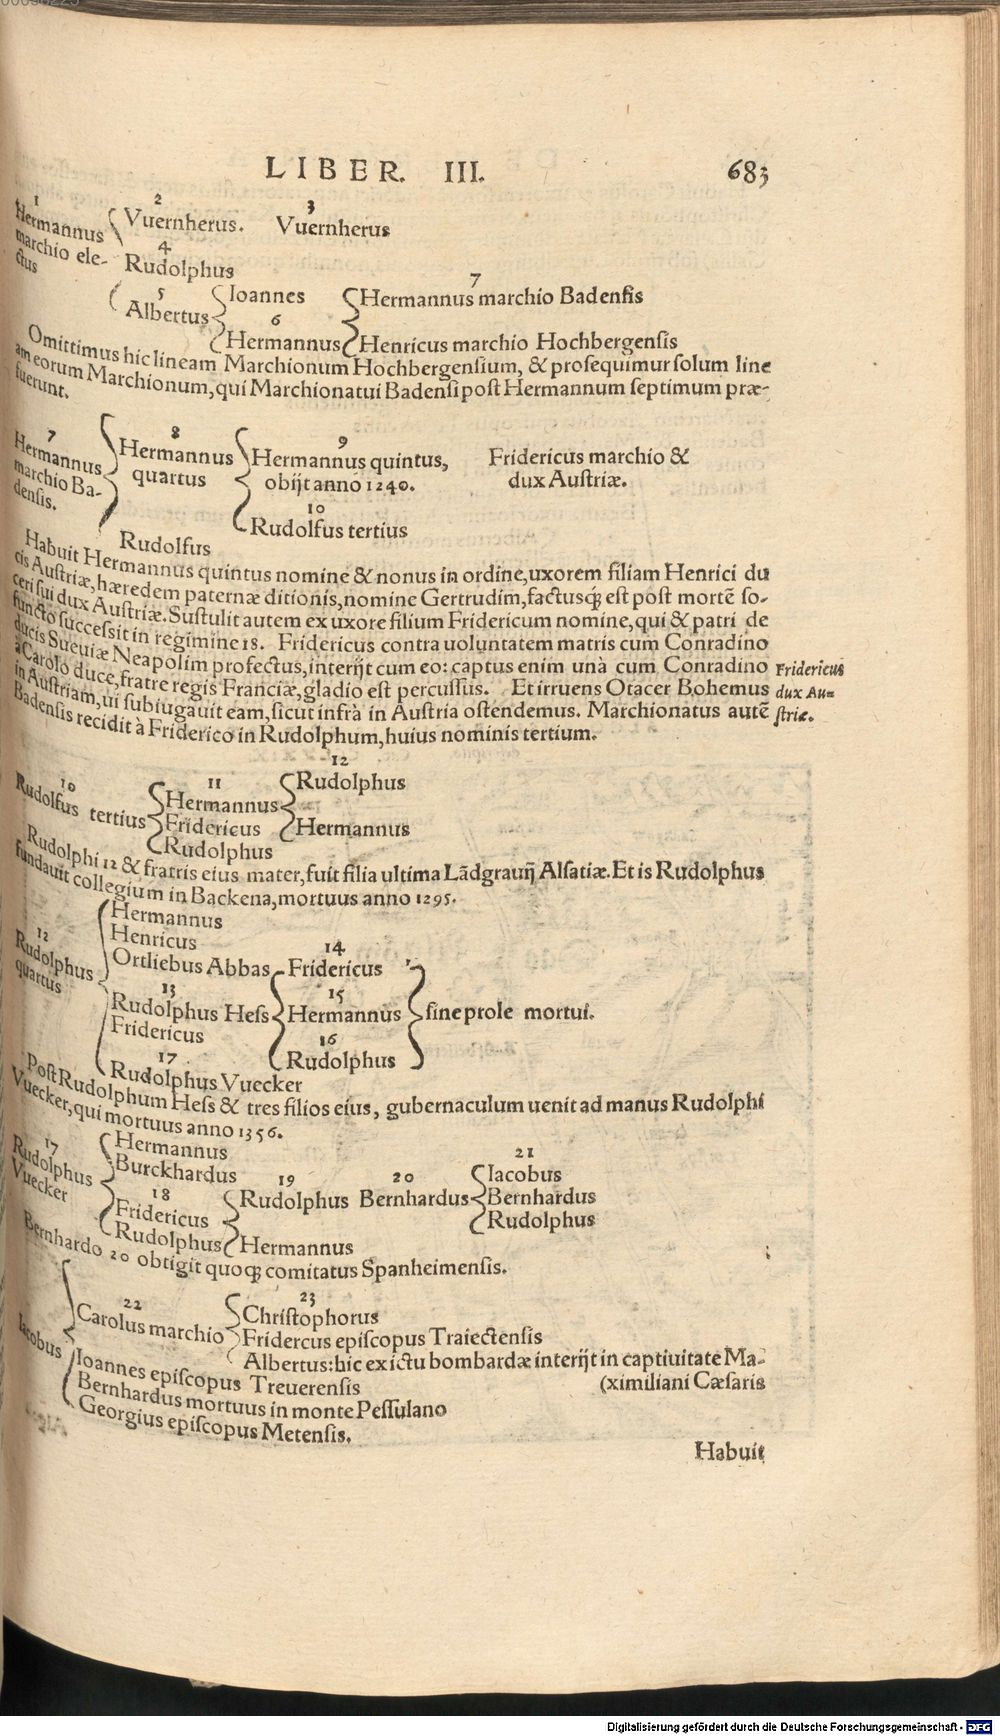 LIBER. III. 683
1 2 3
Hermannus Vuernherus. Vuernherus
marchio ele- 4
ctus Rudolphus
5 Ioannes 7
Albertus 6 Hermannus marchio Badensis
Hermannus Henricus marchio Hochbergensis
Omittimus hic lineam Marchionum Hochbergensium, & prosequimur solum line
am eorum Marchionum, qui Marchionatui Badensi post Hermannum septimum præ-
fuerunt.
7 8 9
Hermannus Hermannus Hermannus quintus, Fridericus marchio &
marchio Ba- quartus obijt anno 1240. dux Austriæ.
densis. 10
Rudolfus tertius
Rudolfus
Habuit Hermannus quintus nomine & nonus in ordine, uxorem filiam Henrici du
cis Austriæ, hæredem paternæ ditionis, nomine Gertrudim, factusq́; est post mortē so-
ceri sui dux Austriæ. Sustulit autem ex uxore filium Fridericum nomine, qui & patri de
functo successit in regimine 18. Fridericus contra uoluntatem matris cum Conradino
ducis Sueuiæ Neapolim profectus, interijt cum eo: captus enim unà cum Conradino
à Carolo duce, fratre regis Franciæ, gladio est percussus. Et irruens Otacer Bohemus
in Austriam, ui subiugauit eam, sicut infrà in Austria ostendemus. Marchionatus autē
Badensis recidit à Friderico in Rudolphum, huius nominis tertium.
Fridericus
dux Au=
striæ.
10 11 12
Rudolfus tertius Hermannus Rudolphus
Fridericus Hermannus
Rudolphus
Rudolphi 12 & fratris eius mater, fuit filia ultima Lādgrauij Alsatiæ. Et is Rudolphus
fundauit collegium in Backena, mortuus anno 1295.
Hermannus
12 Henricus 14
Rudolphus Ortliebus Abbas Fridericus
quartus 13 15
Rudolphus Hess Hermannus sine prole mortui.
Fridericus 16
17 Rudolphus
Rudolphus Vuecker
Post Rudolphum Hess & tres filios eius, gubernaculum uenit ad manus Rudolphi
Vuecker, qui mortuus anno 1356.
17 Hermannus 21
Rudolphus Burckhardus 19 20 Iacobus
Vuecker 18 Rudolphus Bernhardus Bernhardus
Fridericus Rudolphus
Rudolphus Hermannus
Bernhardo 20 obtigit quoq; comitatus Spanheimensis.
22 23
Carolus marchio Christophorus
Iacobus Fridercus episcopus Traiectensis
Albertus: hic ex ictu bombardæ interijt in captiuitate Ma-
Ioannes episcopus Treuerensis (ximiliani Cæsaris
Bernhardus mortuus in monte Pessulano
Georgius episcopus Metensis.
Habuit
Digitalisierung gefördert durch die Deutsche Forschungsgemeinschaft - DFG